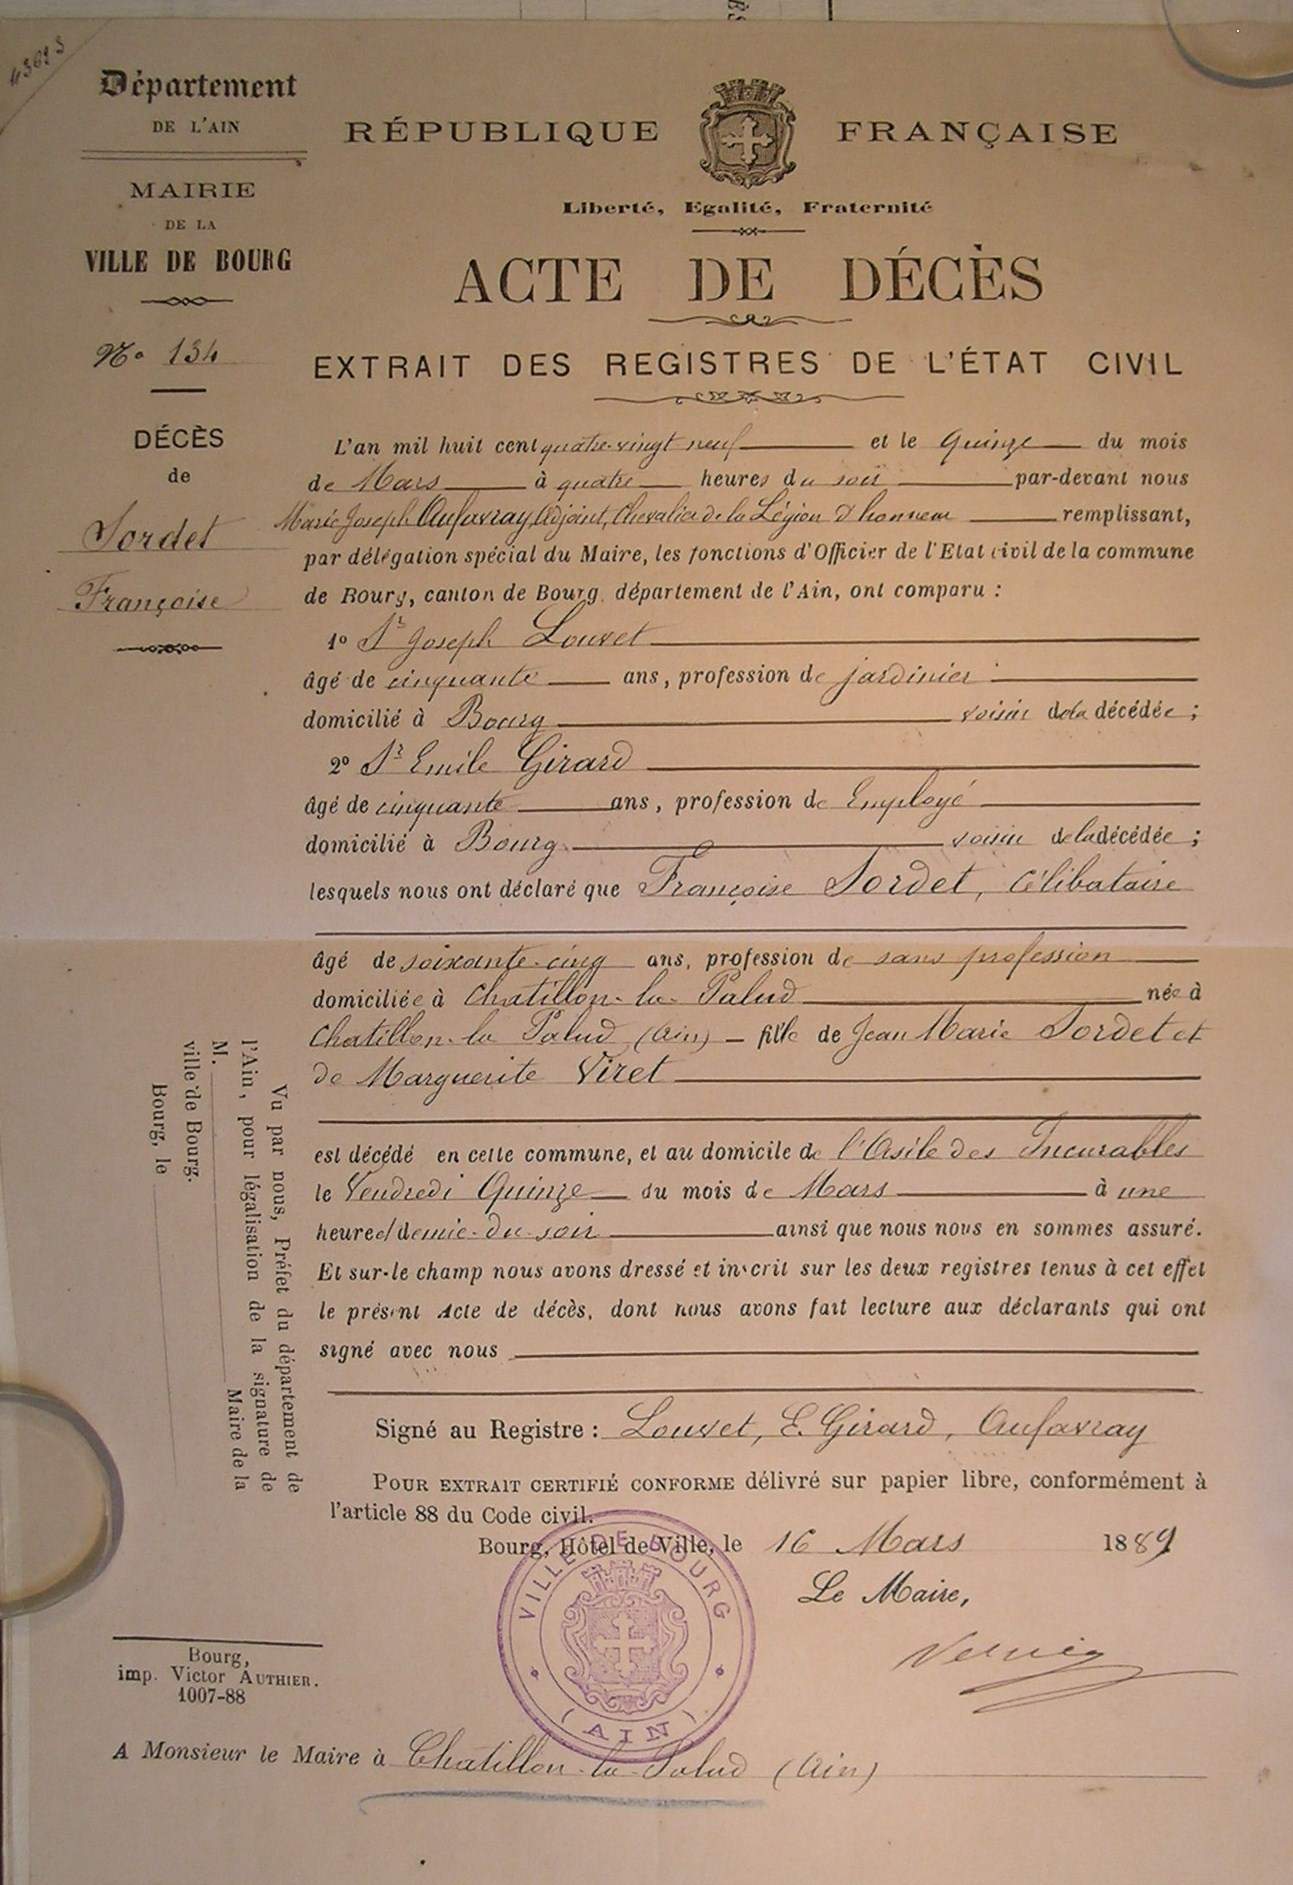 Département
DE L'AIN
MAIRIE
DE LA
VILLE DE BOURG
No 134
DÉCÈS
de
Sordet
Françoise
RÉPUBLIQUE FRANÇAISE
Liberté, Egalité, Fraternité
ACTE DE DÉCÈS
EXTRAIT DES REGISTRES DE L'ÉTAT CIVIL
L'an mil huit cent quatre-vingt neuf et le Quinze du mois
de Mars à quatre heures du soir par-devant nous
Marie Joseph Aufavray, Adjoint, Chevalier de la Légion d'honneur remplissant,
par délégation spécial du Maire, les fonctions d'Officier de l'Etat civil de la commune
de Bourg, canton de Bourg, département de l'Ain, ont comparu :
1o Sr Joseph Louvet
âgé de cinquante ans, profession de jardinier
domicilié à Bourg voisin de la décédée ;
2o Sr Emile Girard
âgé de cinquante ans, profession de Employé
domicilié à Bourg voisin de la décédée ;
lesquels nous ont déclaré que Françoise Sordet, Célibataire
âgé de soixante-cinq ans, profession de sans profession
domiciliée à Chatillon-la-Palud née à
Chatillon-la Palud (Ain) fille de Jean Marie Sordet et
de Marguerite Viret
est décédé en cette commune, et au domicile de l'Asile des Incurables
le Vendredi Quinze du mois de Mars à une
heure et demie du soir ainsi que nous nous en sommes assuré.
Et sur-le champ nous avons dressé et inscrit sur les deux registres tenus à cet effet
le présent Acte de décès, dont nous avons fait lecture aux déclarants qui ont
signé avec nous
Signé au Registre : Louvet, E. Girard, Aufavray
POUR EXTRAIT CERTIFIÉ CONFORME délivré sur papier libre, conformément à
l'article 88 du Code civil.
Bourg, Hôtel de Ville, le 16 Mars 1889
Le Maire,
VILLE DE BOURG
(AIN)
Vu par nous, Préfet du département de
l'Ain, pour légalisation de la signature de
M. Maire de la
ville de Bourg.
Bourg, le
Bourg,
imp. Victor AUTHIER.
1007-88
A Monsieur le Maire à Chatillon-la-Palud (Ain)